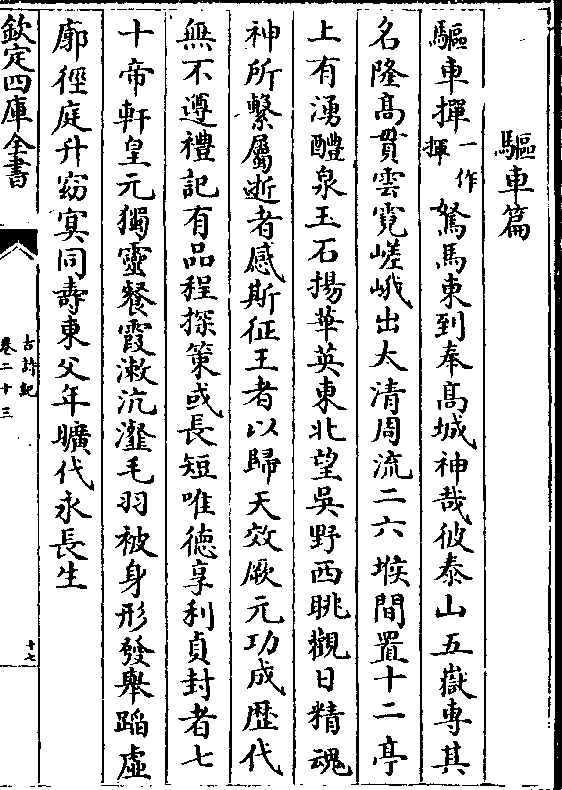 驅車篇
驅車撣一作揮駑馬東到奉髙城神哉彼泰山五嶽專其
名隆髙貫雲霓嵯峨出太清周流二六堠間置十二亭
上有湧醴泉玉石揚華英東北望吳野西眺觀日精魂
神所繫屬逝者感斯征王者以歸天效厥元功成歴代
無不遵禮記有品程探策或長短唯德享利貞封者七
十帝軒皇元獨靈餐霞漱沆瀣毛羽被身形發舉蹈虛
廓徑庭升窈冥同壽東父年曠代永長生
欽定四庫全書
古詩紀
卷二十三
十七